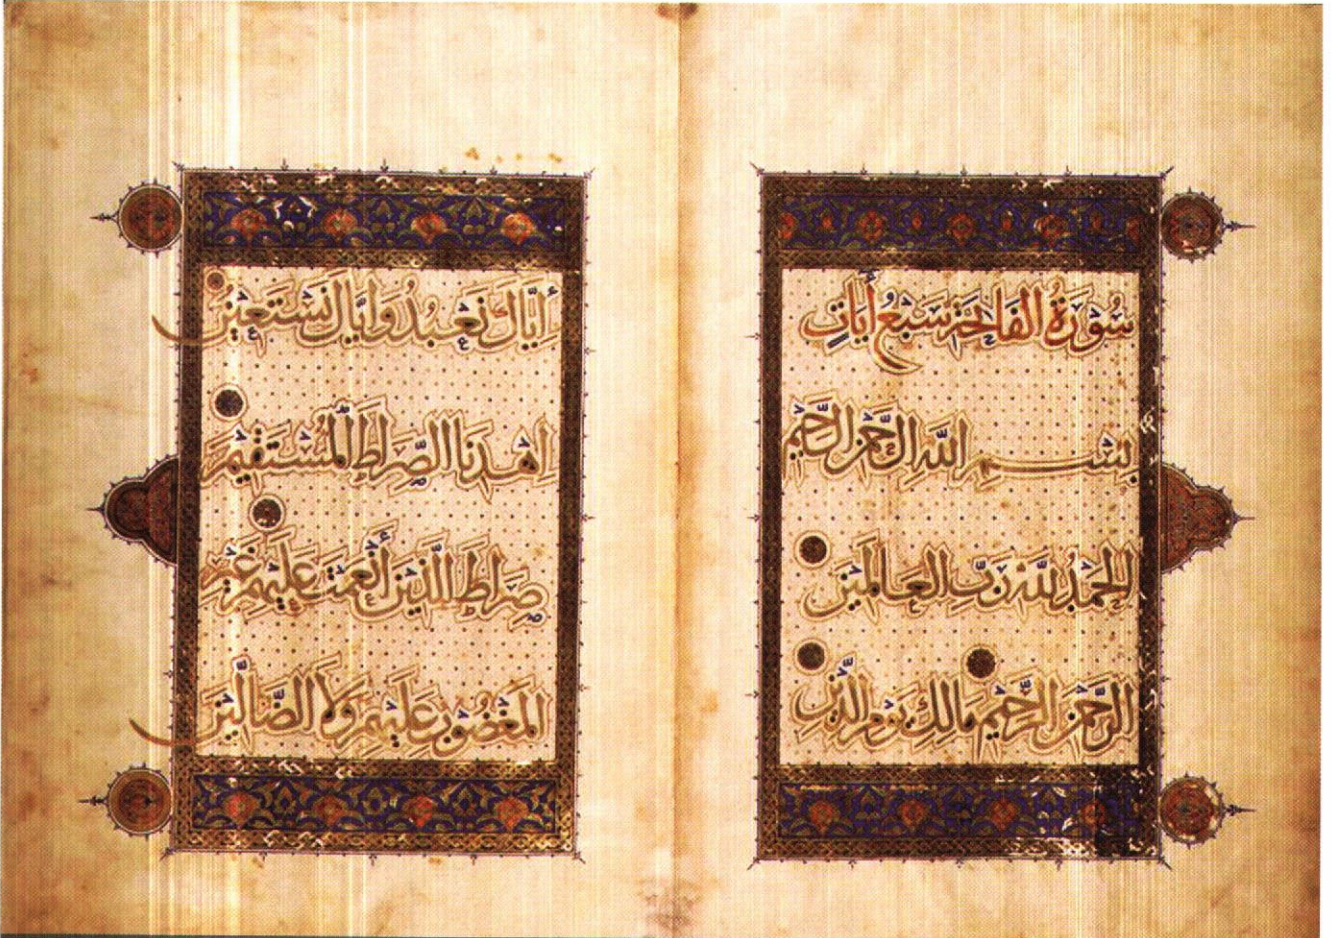 سُوْرَةُ الفَاتِحَةِ سَبْعُ أَيَاتٍ
بِسْمِ اللَّهِ الرَّحْمٰنِ الرَّحِيْمِ
الحَمْدُ لِلَّهِ رَبِّ العَالَمِيْنَ
الرَّحْمٰنِ الرَّحِيْمِ مَالِكِ يَوْمِ الدِّيْنِ
إِيَّاكَ نَعْبُدُ وَإِيَّاكَ نَسْتَعِيْنُ
اهْدِنَا الصِّرَاطَ الْمُسْتَقِيْمَ
صِرَاطَ الَّذِيْنَ أَنْعَمْتَ عَلَيْهِمْ غَيْرِ
الْمَغْضُوْبِ عَلَيْهِمْ وَلَا الضَّالِّيْنَ